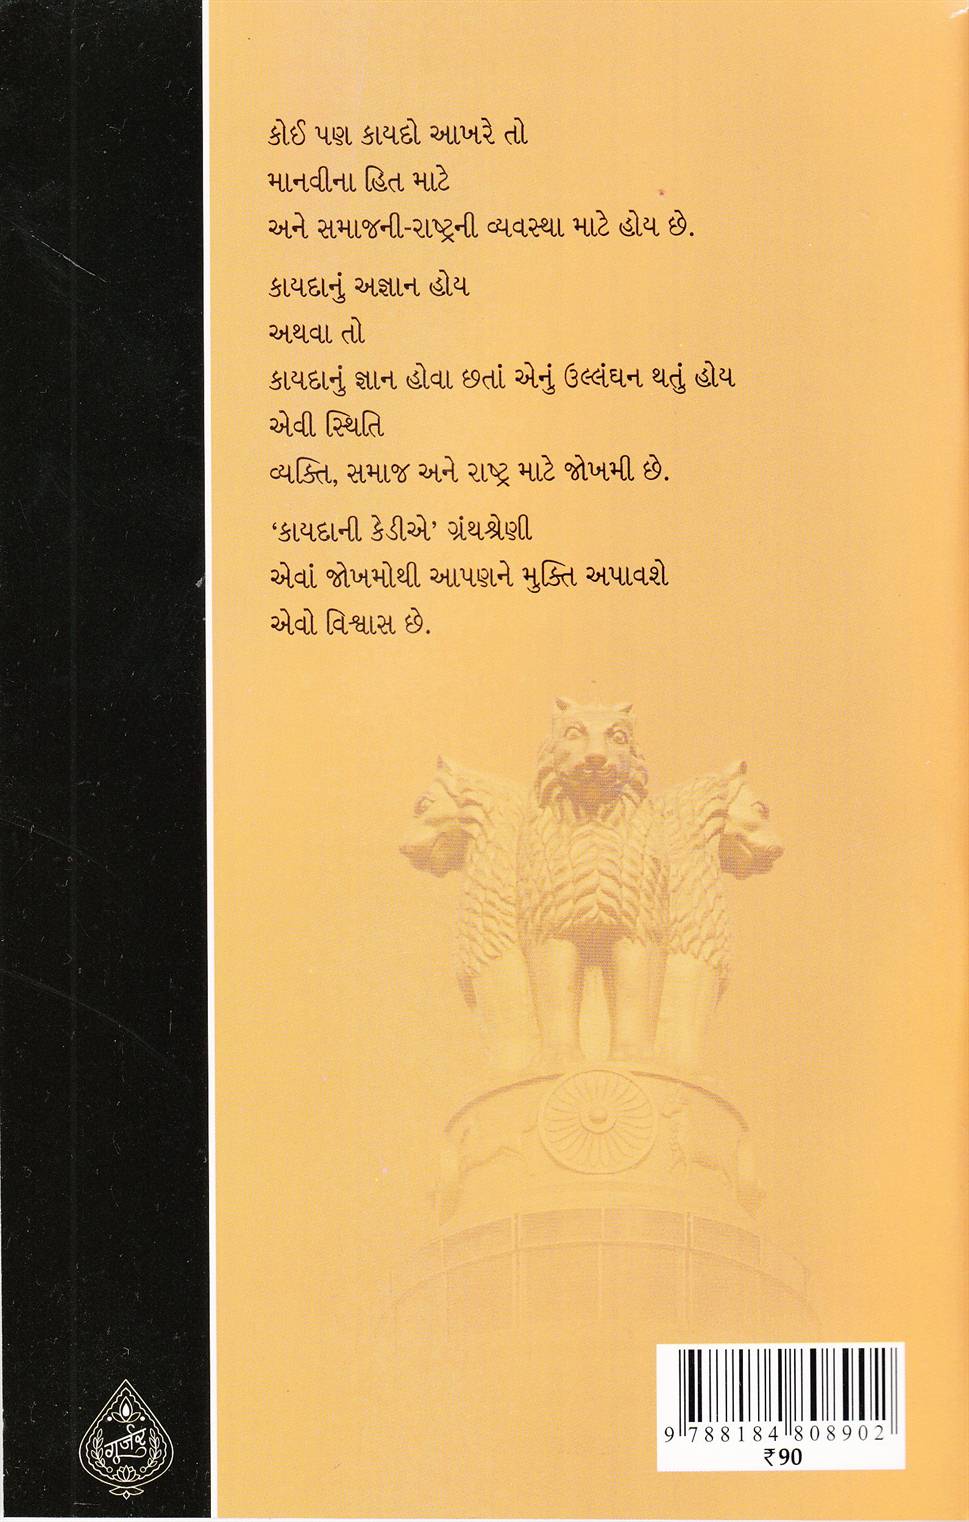 કોઈ પણ કાયદો આખરે તો
માનવીના હિત માટે
અને સમાજની-રાષ્ટ્રની વ્યવસ્થા માટે હોય છે.
કાયદાનું અજ્ઞાન હોય
અથવા તો
કાયદાનું જ્ઞાન હોવા છતાં એનું ઉલ્લંઘન થતું હોય
એવી સ્થિતિ
વ્યક્તિ, સમાજ અને રાષ્ટ્ર માટે જોખમી છે.
‘કાયદાની કેડીએ’ ગ્રંથશ્રેણી
એવાં જોખમોથી આપણને મુક્તિ અપાવશે
એવો વિશ્વાસ છે.
ગૂર્જર
9 788184 808902
₹90